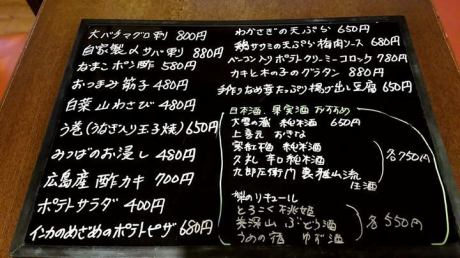 大バチマグロ刺 800円
自家製〆サバ刺 880円
なまこポン酢 580円
おつまみ筋子 480円
白菜山わさび 480円
う巻(うなぎ入り玉子焼) 650円
みつばのお浸し 480円
広島産 酢カキ 700円
ポテトサラダ 400円
インカのめざめのポテトピザ 680円
わかさぎの天ぷら 650円
鶏ササミの天ぷら梅肉ソース 680円
ベーコン入りポテトクリーミーコロッケ 780円
カキと木の子のグラタン 880円
手作りなめ茸たっぷり揚げ出し豆腐 650円
日本酒、果実酒 おすすめ
大雪の蔵 純米酒 650円
上喜元 おきな
寒紅梅 純米酒
久礼 辛口純米酒
各750円
九郎左衛門 裏雅山流
梨のリキュール
とろこく桃姫
美深山 ぶどう酒
うめの宿 ゆず酒
各550円